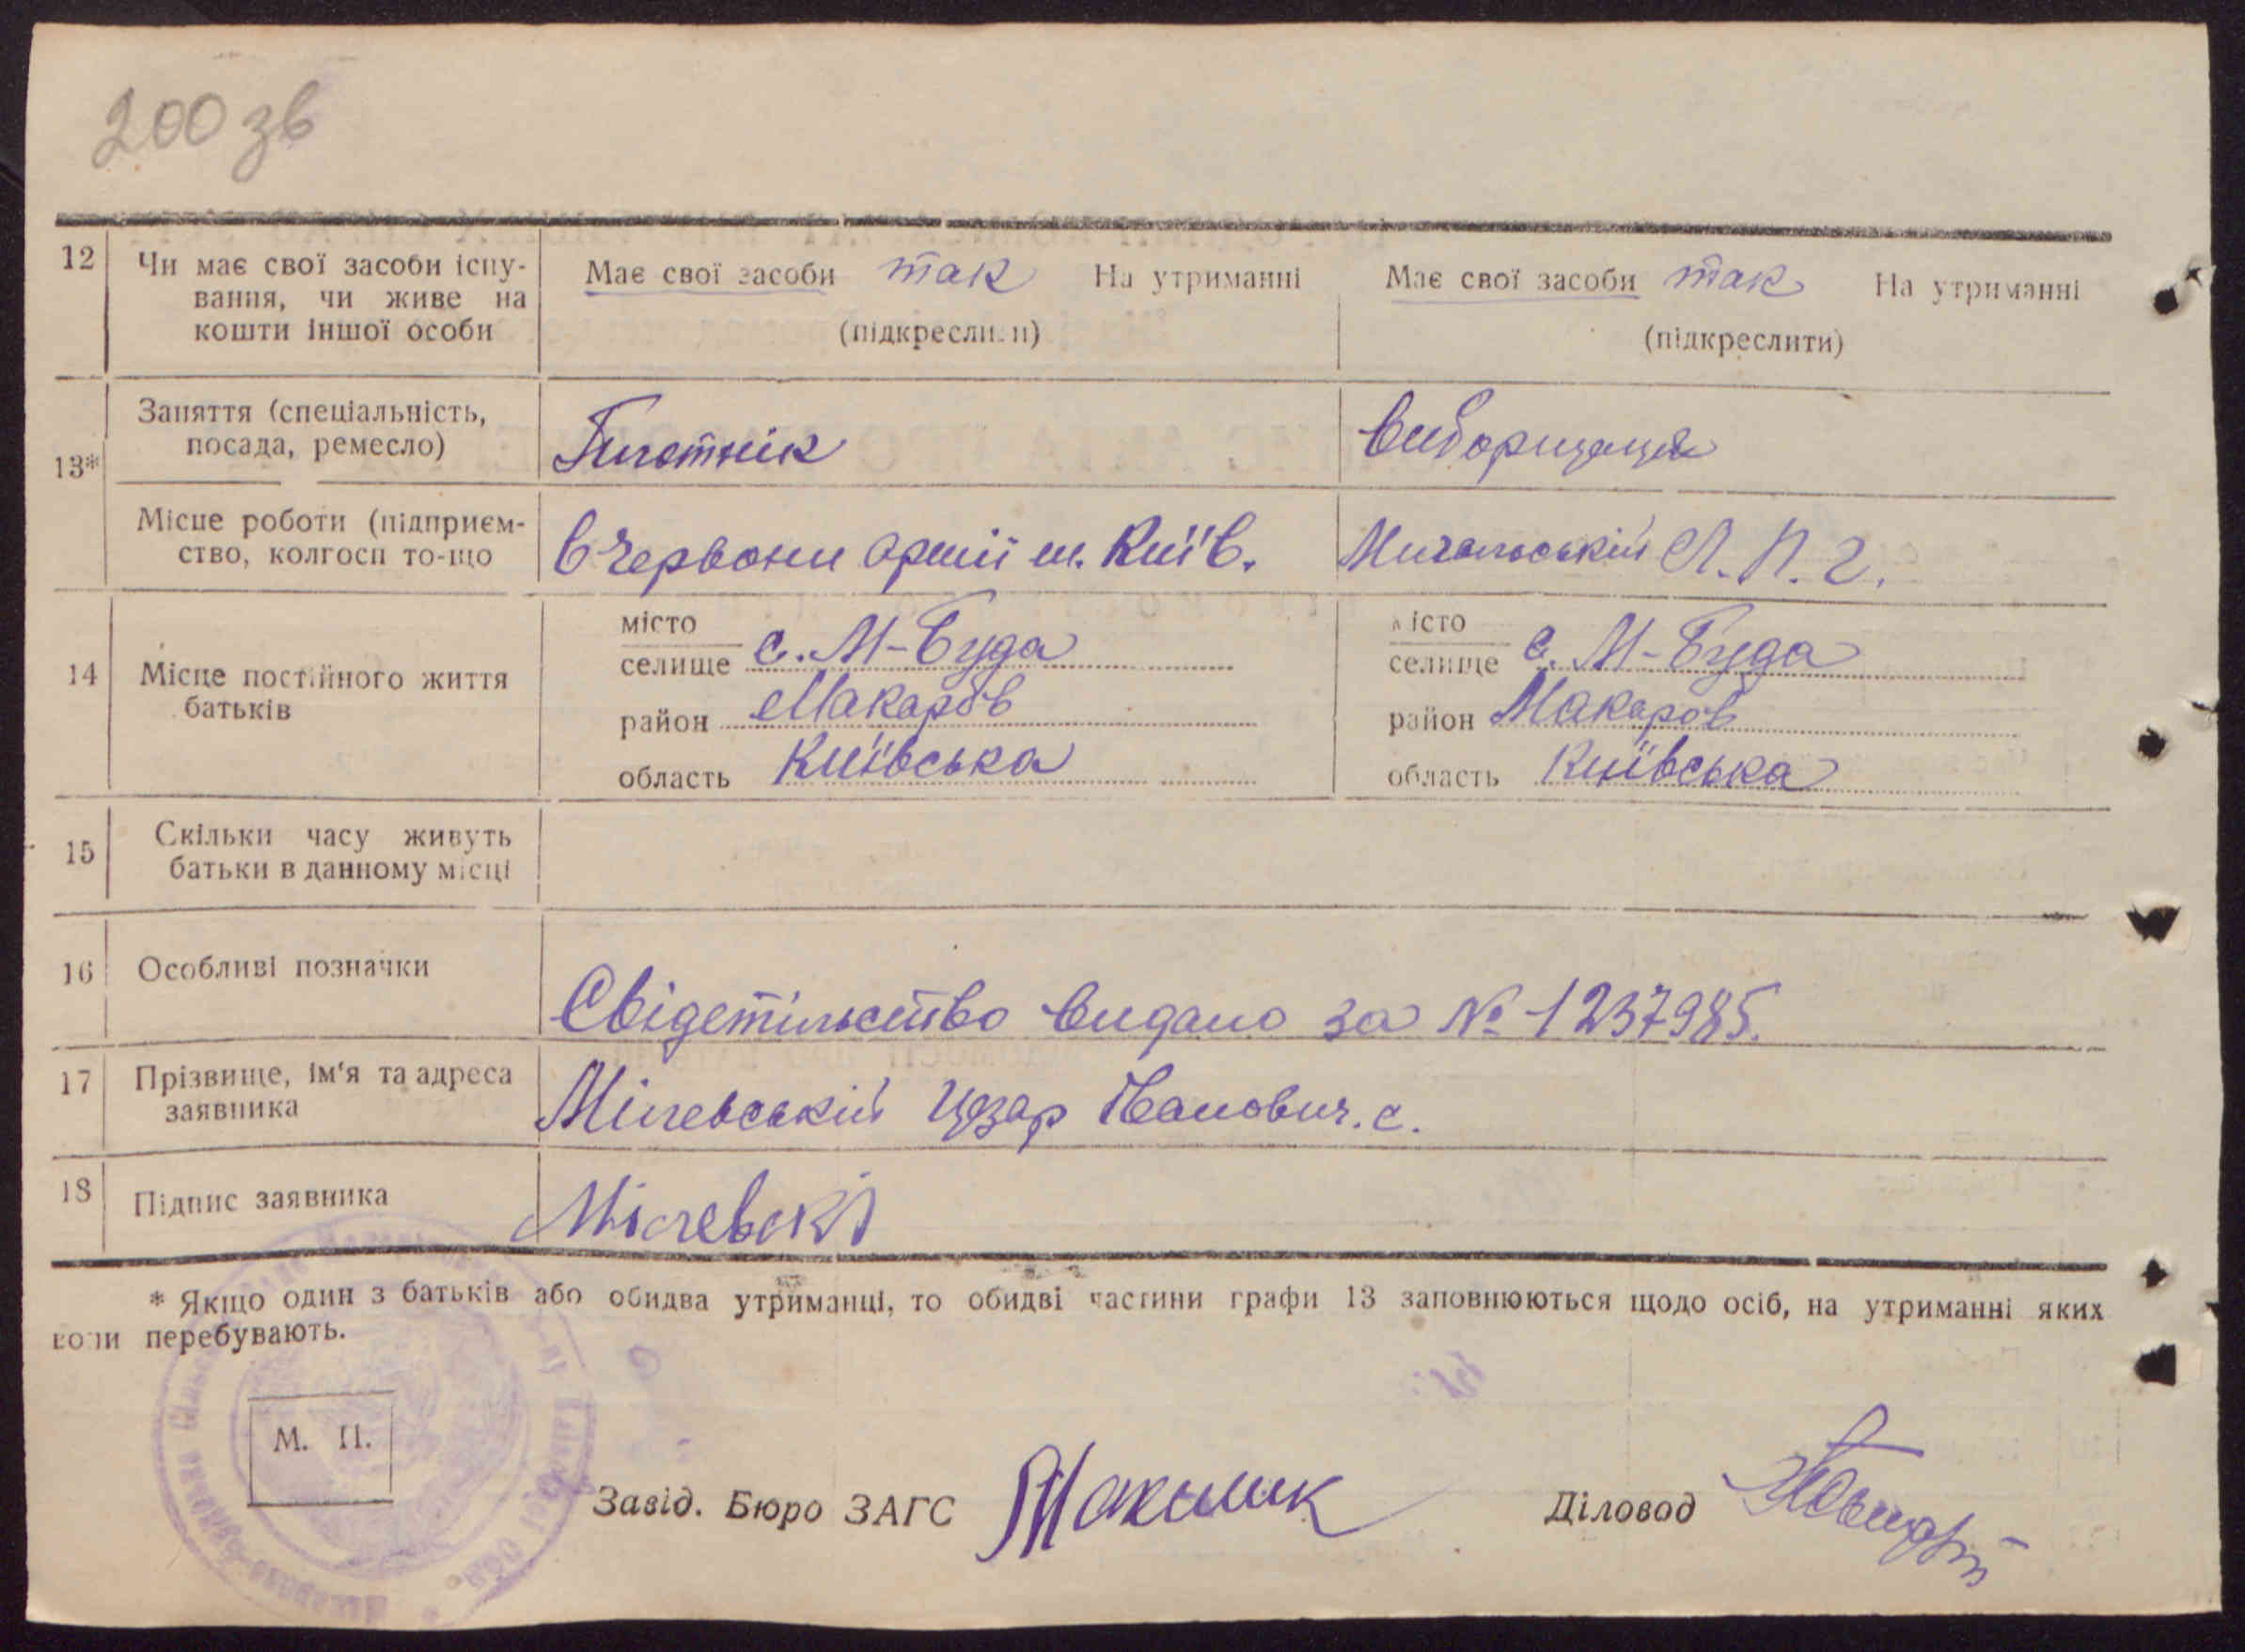 200 зв
12 Чи має свої засоби існу-
вання, чи живе на
кошти іншої особи
Має свої засоби так На утриманні
(підкреслити)
Має свої засоби так На утриманні
(підкреслити)
13*
Заняття (спеціальність,
посада, ремесло)
Пилотнік
Виборщиця
Місце роботи (підприєм-
ство, колгосп то-що
В Червони армії м. Київ.
Мигальський Л.П.г.
14 Місце постійного життя
батьків
місто
селище с. М-Буда
район Макаров
область Київська
місто
селище с. М-Буда
район Макаров
область Київська
15 Скільки часу живуть
батьки в данному місці
16 Особливі позначки
Свідетільство видано за № 1237985.
17 Прізвище, ім'я та адреса
заявника
Мілевський Цезар Іванович. с.
18 Підпис заявника
Мілевскі
* Якщо один з батьків або обидва утриманці, то обидві частини графи 13 заповнюються щодо осіб, на утриманні яких
вони перебувають.
М. П.
Завід. Бюро ЗАГС
Діловод